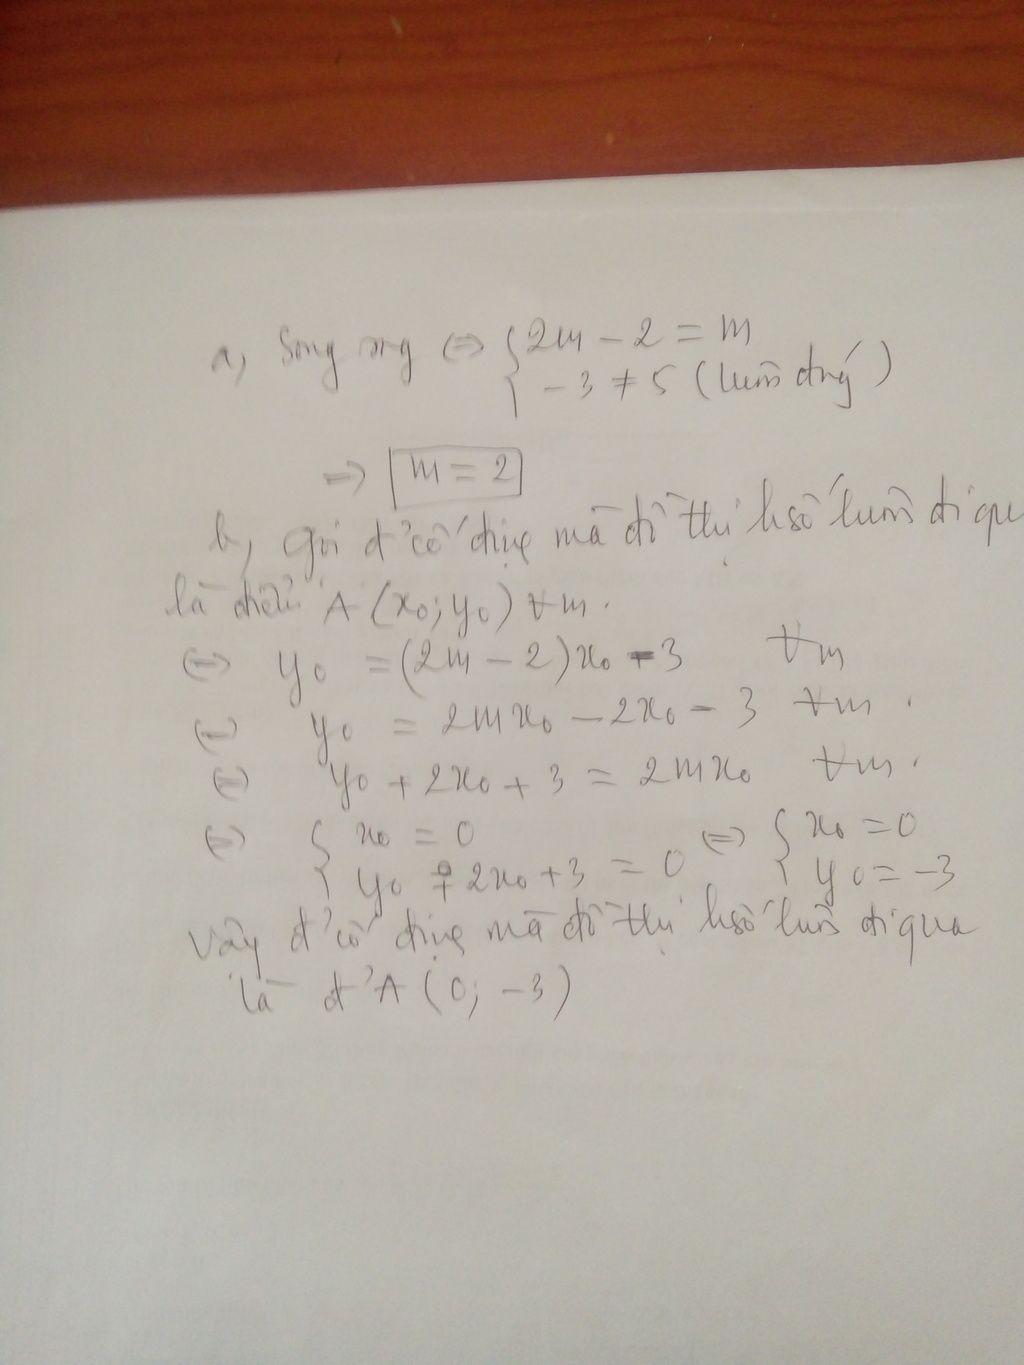 a, Song song ⇔ { 2m - 2 = m
-3 ≠ 5 (luôn đúng)
⇒ m = 2
b, Gọi đ' cố định mà đồ thị hsố luôn đi qua
là điểm A (x₀; y₀) ∀m.
⇔ y₀ = (2m - 2)x₀ - 3 ∀m
⇔ y₀ = 2mx₀ - 2x₀ - 3 ∀m.
⇔ y₀ + 2x₀ + 3 = 2mx₀ ∀m.
⇔ { x₀ = 0 ⇔ { x₀ = 0
y₀ + 2x₀ + 3 = 0 y₀ = -3
Vậy đ' cố định mà đồ thị hsố luôn đi qua
là đ' A (0; -3)